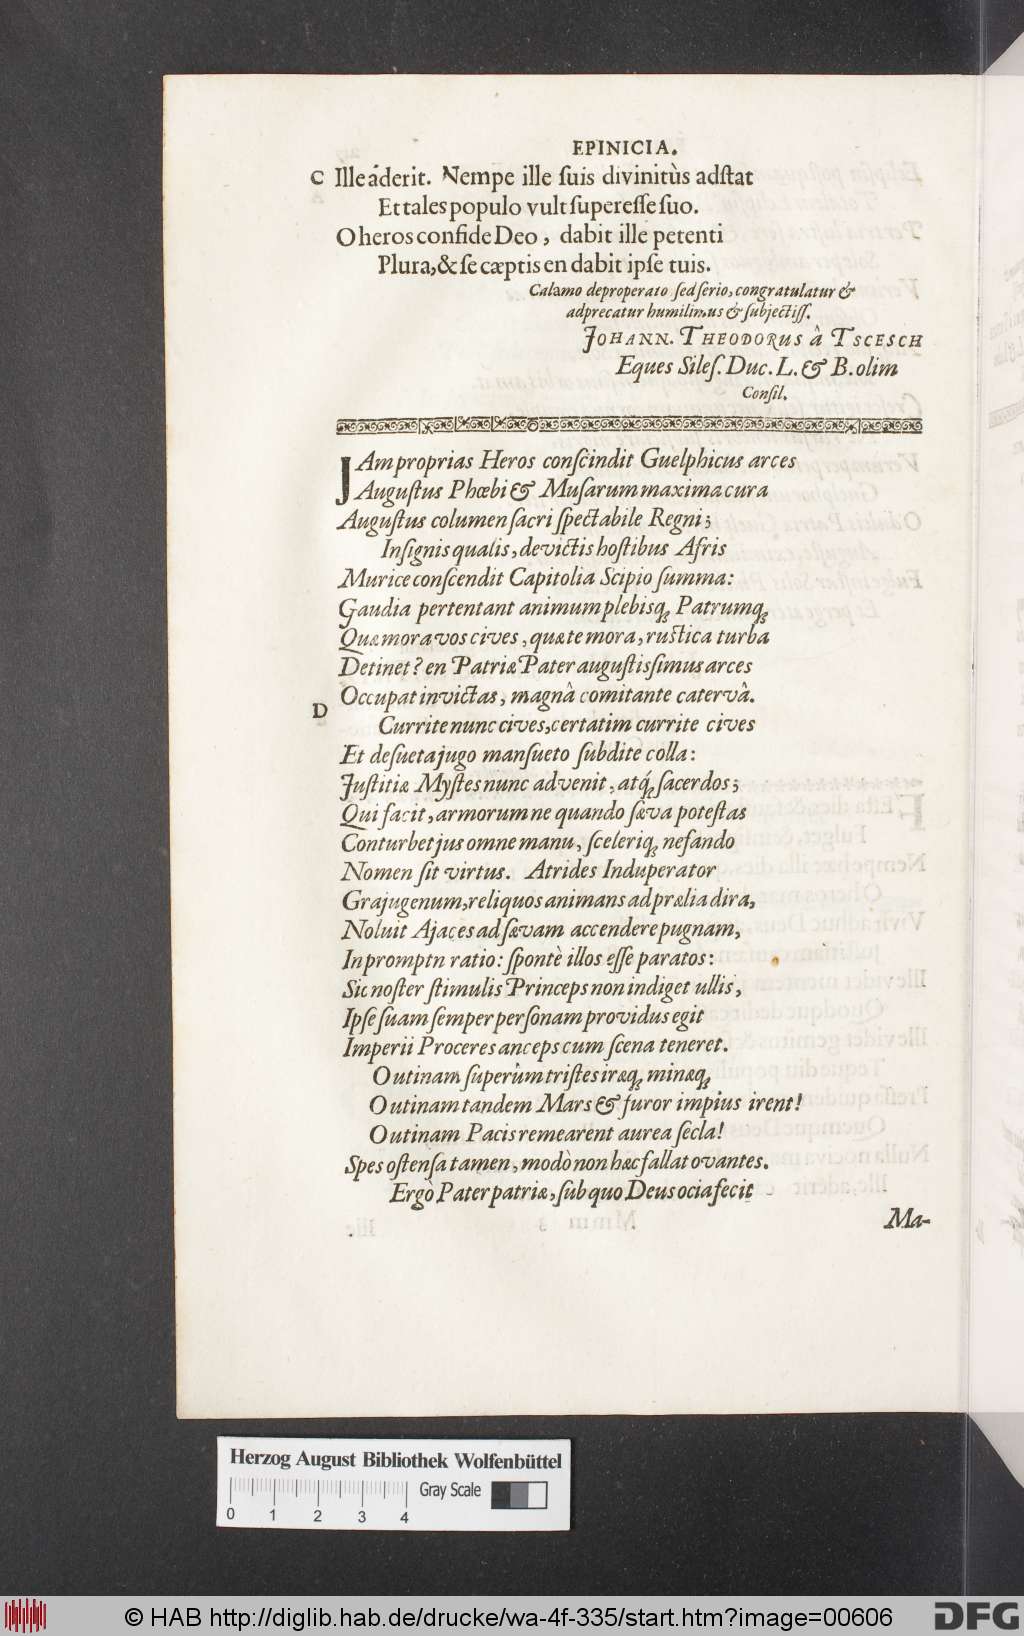 EPINICIA.
C Ille áderit. Nempe ille ſuis divinitùs adſtat
Et tales populo vult ſupereſſe ſuo.
O heros confide Deo, dabit ille petenti
Plura, & ſe cæptis en dabit ipſe tuis.
Calamo deproperato ſed ſerio, congratulatur &
adprecatur humilimus & ſubjectiſſ.
JOHANN. THEODORUS â TSCESCH
Eques Sileſ. Duc. L. & B. olim
Conſil.
JAm proprias Heros conſcindit Guelphicus arces
Auguſtus Phœbi & Muſarum maxima cura
Auguſtus columen ſacri ſpectabile Regni;
Inſignis qualis, devictis hoſtibus Afris
Murice conſcendit Capitolia Scipio ſumma:
Gaudia pertentant animum plebisq́; Patrumq́;
Quæ mora vos cives, quæ te mora, ruſtica turba
Detinet? en Patriæ Pater auguſtisſimus arces
Occupat invictas, magnâ comitante catervâ.
D
Currite nunc cives, certatim currite cives
Et deſueta jugo manſueto ſubdite colla:
Juſtitiæ Myſtes nunc advenit, atq́; ſacerdos;
Qui facit, armorum ne quando ſæva poteſtas
Conturbet jus omne manu, ſceleriq́; nefando
Nomen ſit virtus. Atrides Induperator
Grajugenum, reliquos animans ad prælia dira,
Noluit Ajaces ad ſævam accendere pugnam,
In promptn ratio: ſpontè illos eſſe paratos:
Sic noſter ſtimulis Princeps non indiget ullis,
Ipſe ſuam ſemper perſonam providus egit
Imperii Proceres anceps cum ſcena teneret.
O utinam ſuperûm triſtes iræq́; minæq́;
O utinam tandem Mars & furor impius irent!
O utinam Pacis remearent aurea ſecla!
Spes oſtenſa tamen, modò non hæc fallat ovantes.
Ergò Pater patriæ, ſub quo Deus ocia fecit
Ma-
Herzog August Bibliothek Wolfenbüttel
Gray Scale
0 1 2 3 4
© HAB http://diglib.hab.de/drucke/wa-4f-335/start.htm?image=00606
DFG